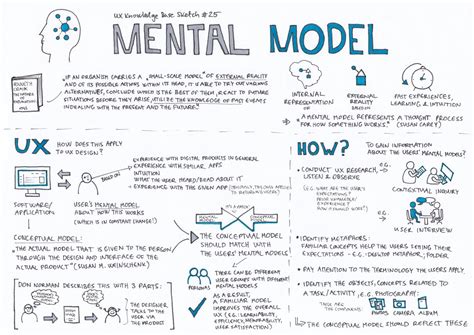 UX Knowledge Base Sketch #25
MENTAL MODEL
KENNETH
CRAIK:
THE NATURE
OF
EXPLANATION
„IF AN ORGANISM CARRIES A „SMALL-SCALE MODEL" OF EXTERNAL REALITY
AND OF ITS POSSIBLE ACTIONS WITHIN ITS HEAD, IT IS ABLE TO TRY OUT VARIOUS
ALTERNATIVES, CONCLUDE WHICH IS THE BEST OF THEM, REACT TO FUTURE
SITUATIONS BEFORE THEY ARISE, UTILIZE THE KNOWLEDGE OF PAST EVENTS
IN DEALING WITH THE PRESENT AND THE FUTURE."
INTERNAL
REPRESENTATION
OF
EXTERNAL
REALITY
BASED ON
PAST EXPERIENCES,
LEARNING & INTUITION
„A MENTAL MODEL REPRESENTS A THOUGHT PROCESS
FOR HOW SOMETHING WORKS." (SUSAN CAREY)
UX HOW DOES THIS APPLY
TO UX DESIGN?
SOFTWARE/
APPLICATION
BASED ON
USER'S MENTAL MODEL
ABOUT HOW THIS WORKS
(WHICH IS IN CONSTANT CHANGE!)
EXPERIENCE WITH DIGITAL PRODUCTS IN GENERAL
EXPERIENCE WITH SIMILAR APPS
INTUITION
WHAT THE USER HEARD/READ ABOUT IT
EXPERIENCE WITH THE GIVEN APP
CONCEPTUAL MODEL:
THE ACTUAL MODEL THAT IS GIVEN TO THE PERSON
THROUGH THE DESIGN AND INTERFACE OF THE
ACTUAL PRODUCT" (SUSAN M. WEINSCHENK)
IT'S A MATCH
MENTAL
MODEL
CONCEPTUAL
MODEL
THE CONCEPTUAL MODEL
SHOULD MATCH WITH
THE USERS' MENTAL MODELS!
DON NORMAN DESCRIBES THIS WITH 3 PARTS:
THE DESIGNER
TALKS TO
THE USER
VIA THE
PRODUCT
PERSONAS
THERE CAN BE DIFFERENT
USER GROUPS WITH DIFFERENT
MENTAL MODELS
AS A RESULT,
A FAMILIAR MODEL
IMPROVES THE OVERALL
UX (E.G. LEARNABILITY,
EFFICIENCY, NUMBER OF
ERRORS)
HOW? TO GAIN INFORMATION
ABOUT THE USERS' MENTAL MODELS?
CONDUCT UX RESEARCH,
LISTEN & OBSERVE
e.g.
CONTEXTUAL INQUIRY
e.g.
USER INTERVIEW
(E.G. WHAT ARE THE USER'S
EXPECTATIONS?
PRIOR KNOWLEDGE/
EXPERIENCE?)
IDENTIFY METAPHORS:
FAMILIAR CONCEPTS HELP THE USERS SETTING THEIR
EXPECTATIONS - E.G. DESKTOP METAPHOR, FOLDER
PAY ATTENTION TO THE TERMINOLOGY THE USERS APPLY
IDENTIFY THE OBJECTS, CONCEPTS RELATED TO
A TASK/ACTIVITY, E.G. PHOTOGRAPHY:
THESE ARE
THE
COMPONENTS
PHOTOS CAMERA ALBUM